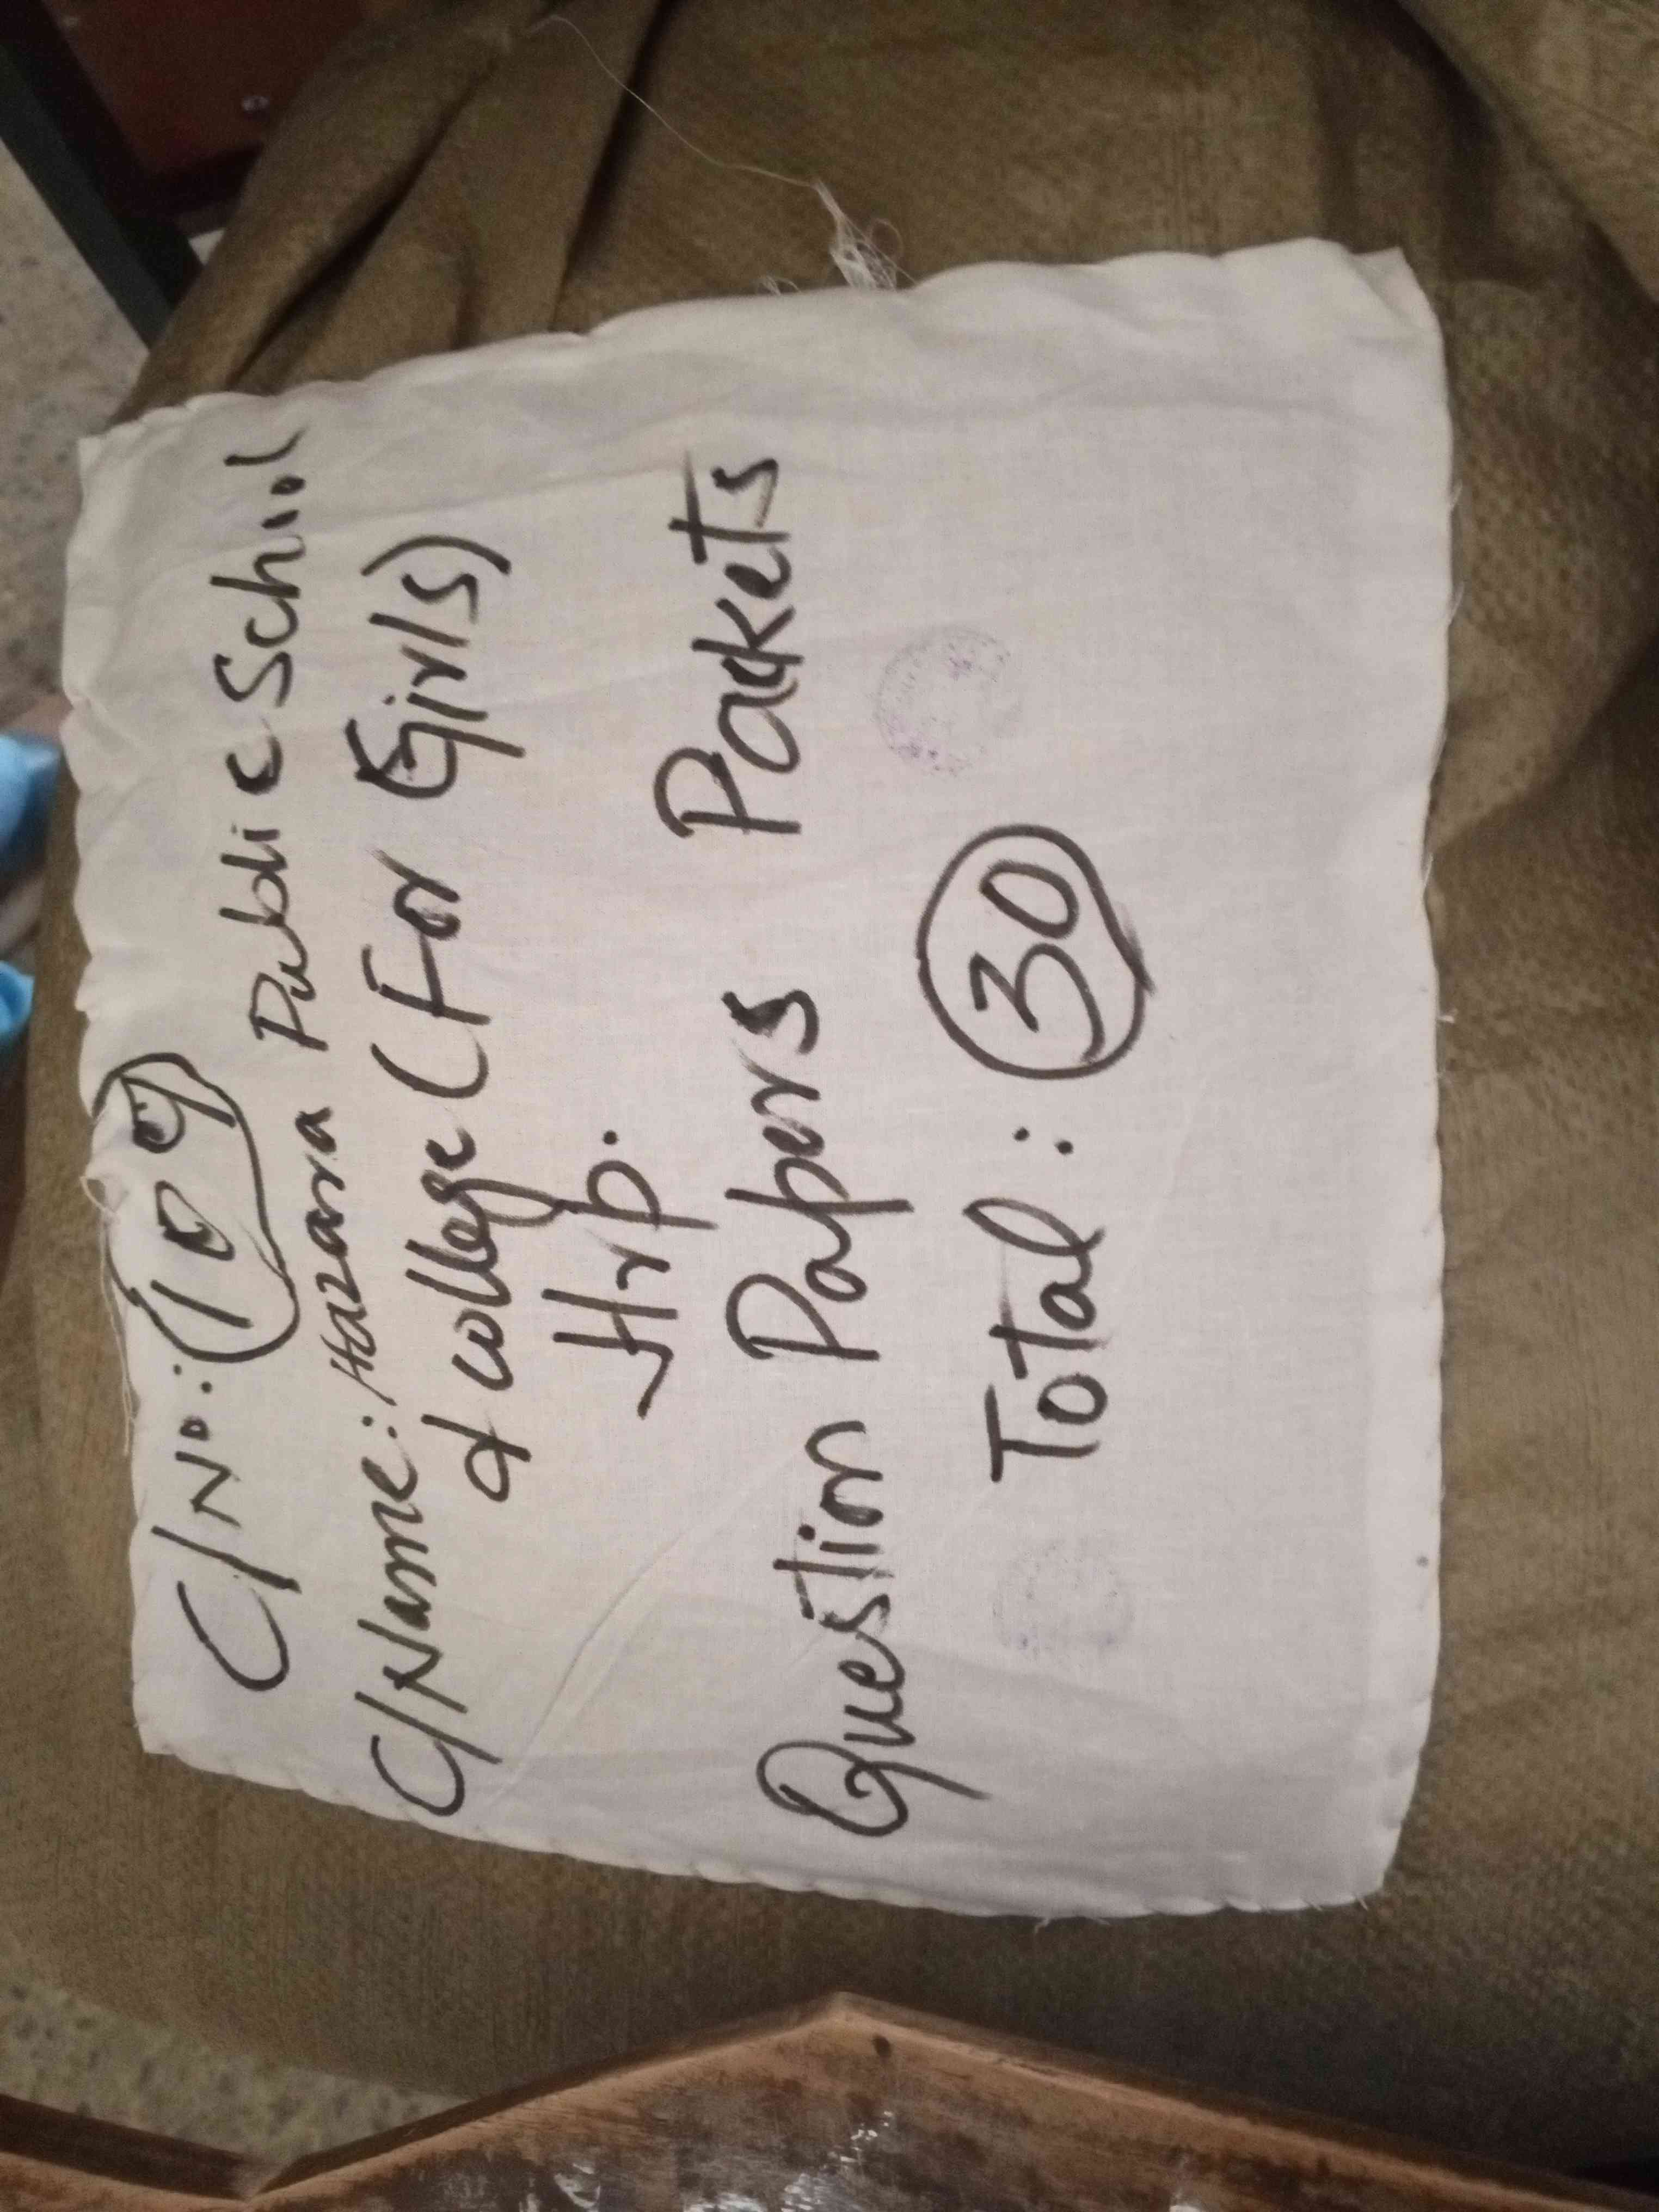 C/No: 109
C/Name: Hazara Public School
& College (For Girls)
Hrp.
Question Papers Packets
Total: 30